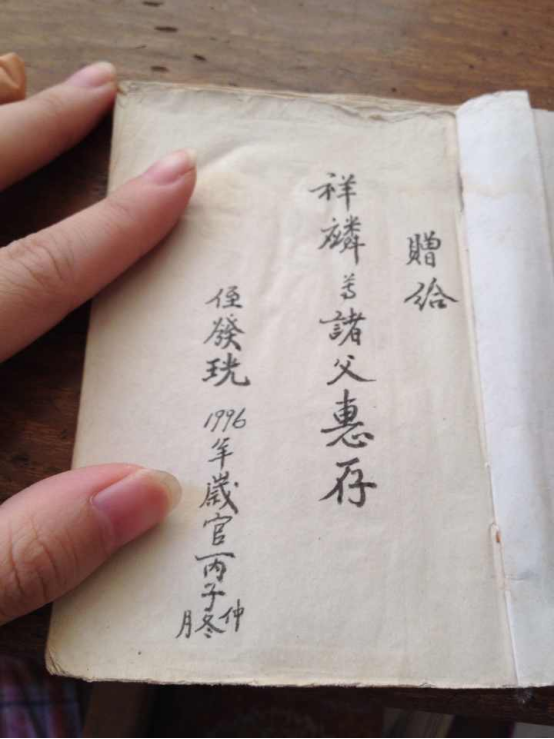 贈給
祥麟等諸父惠存
侄發珖 1996年歲官丙子仲冬月